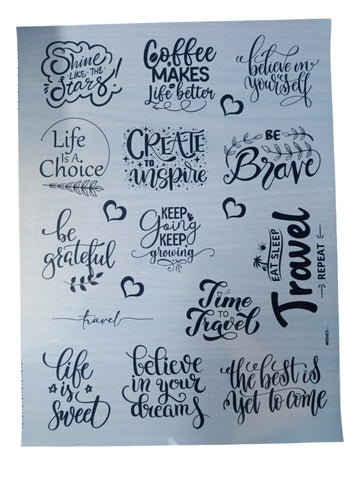 Shine
LIKE THE
Stars!
Coffee
MAKES
Life better
believe in
yourself
Life
IS A
Choice
CREATE
TO
inspire
BE
Brave
be
grateful
KEEP
Going
KEEP
growing
EAT SLEEP
Travel
REPEAT
travel
Time
TO
Travel
life
is
sweet
believe
in your
dreams
the best is
yet to come